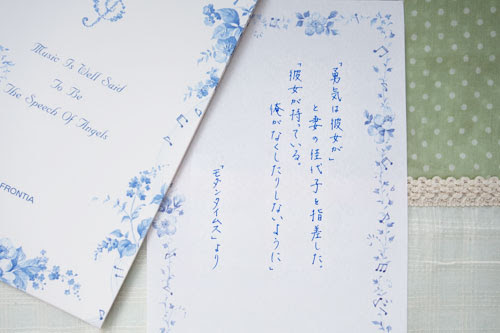 Music Is Well Said
To Be
The Speech Of Angels
FRONTIA
「勇気は彼女が」
と妻の佳代子を指差した。
「彼女が持っている。
俺がなくしたりしないように」
「モダンタイムス」より